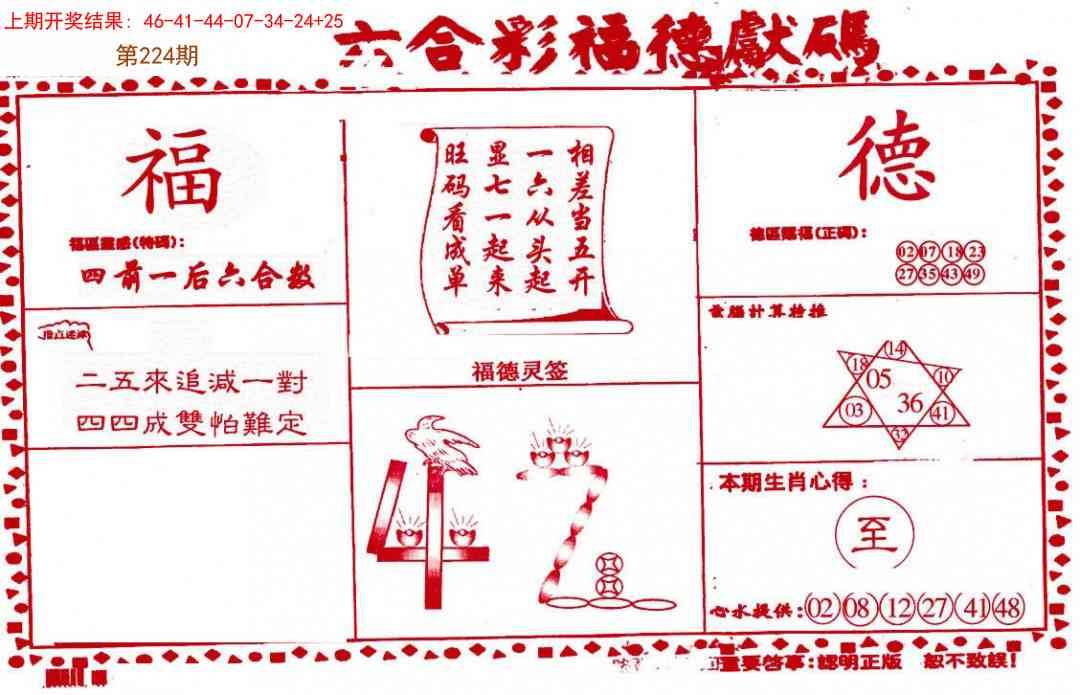 上期开奖结果：46-41-44-07-34-24+25
第224期
六合彩福德獻碼
福
福區靈感(特碼)：
四前一后六合数
二五來追减一對
四四成雙怕難定
相差当五开
一六从头起
显七一起来
旺码看成单
福德灵签
42
德
德區賜福(正碼)：
02 07 18 23
27 35 43 49
計算
14
18 05 10
03 36 41
32
本期生肖心得：
至
心水提供：02 08 12 27 41 48
重要啓事：認明正版 恕不致誤！